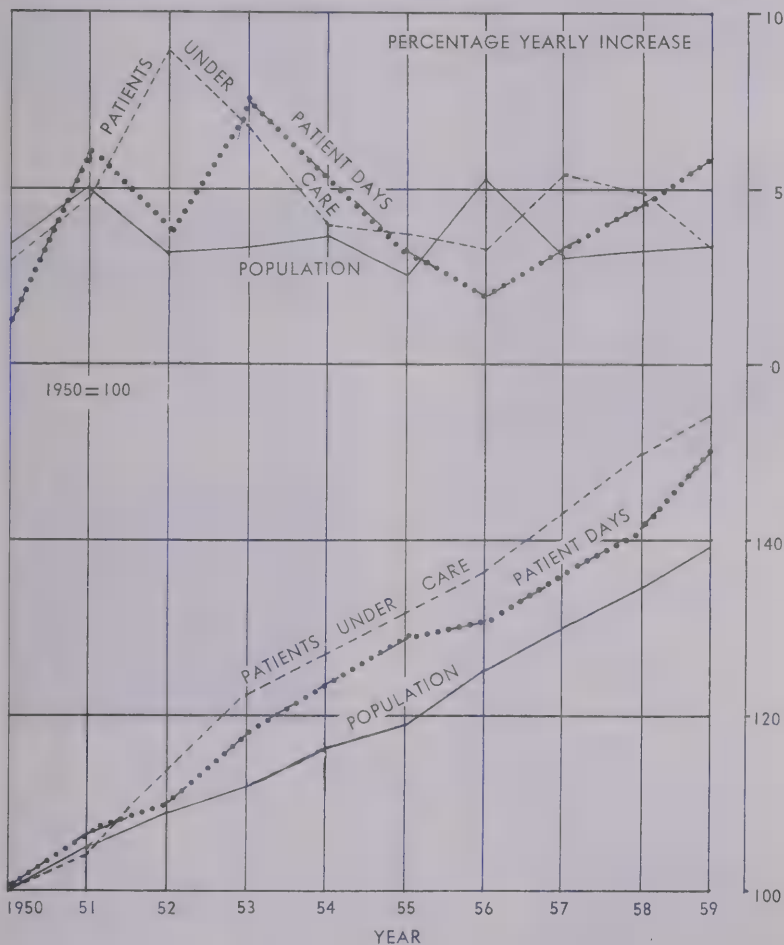 10
PERCENTAGE YEARLY INCREASE
PATIENTS UNDER CARE
PATIENT DAYS
5
POPULATION
0
1950=100
140
PATIENTS UNDER CARE
PATIENT DAYS
POPULATION
120
100
1950 51 52 53 54 55 56 57 58 59
YEAR